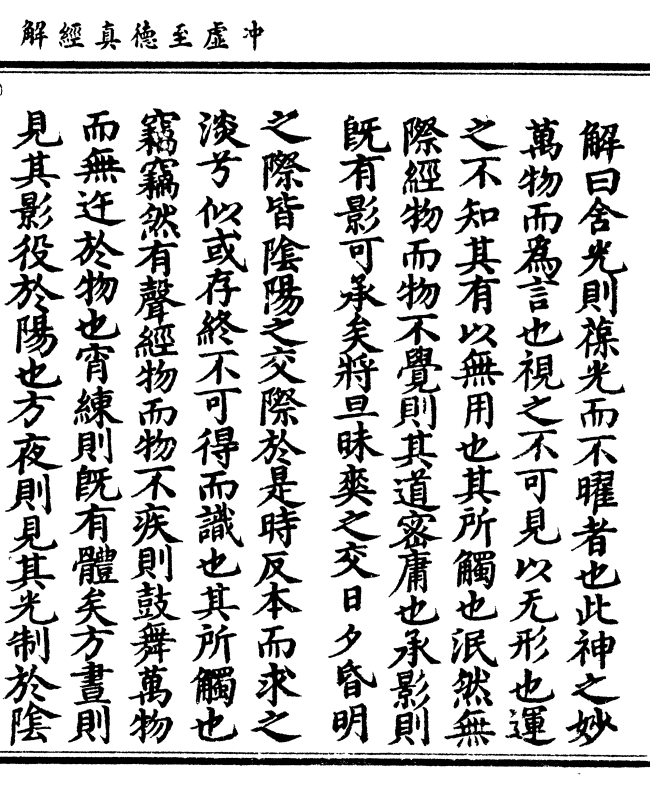 冲虛至德真經解
解曰含光則葆光而不曜者也此神之妙
萬物而為言也視之不可見以无形也運
之不知其有以無用也其所觸也泯然無
際經物而物不覺則其道密庸也承影則
既有影可承矣將旦昧爽之交日夕昏明
之際皆陰陽之交際於是時反本而求之
淡兮似或存終不可得而識也其所觸也
竊竊然有聲經物而物不疾則鼓舞萬物
而無迕於物也宵練則既有體矣方晝則
見其影役於陽也方夜則見其光制於陰